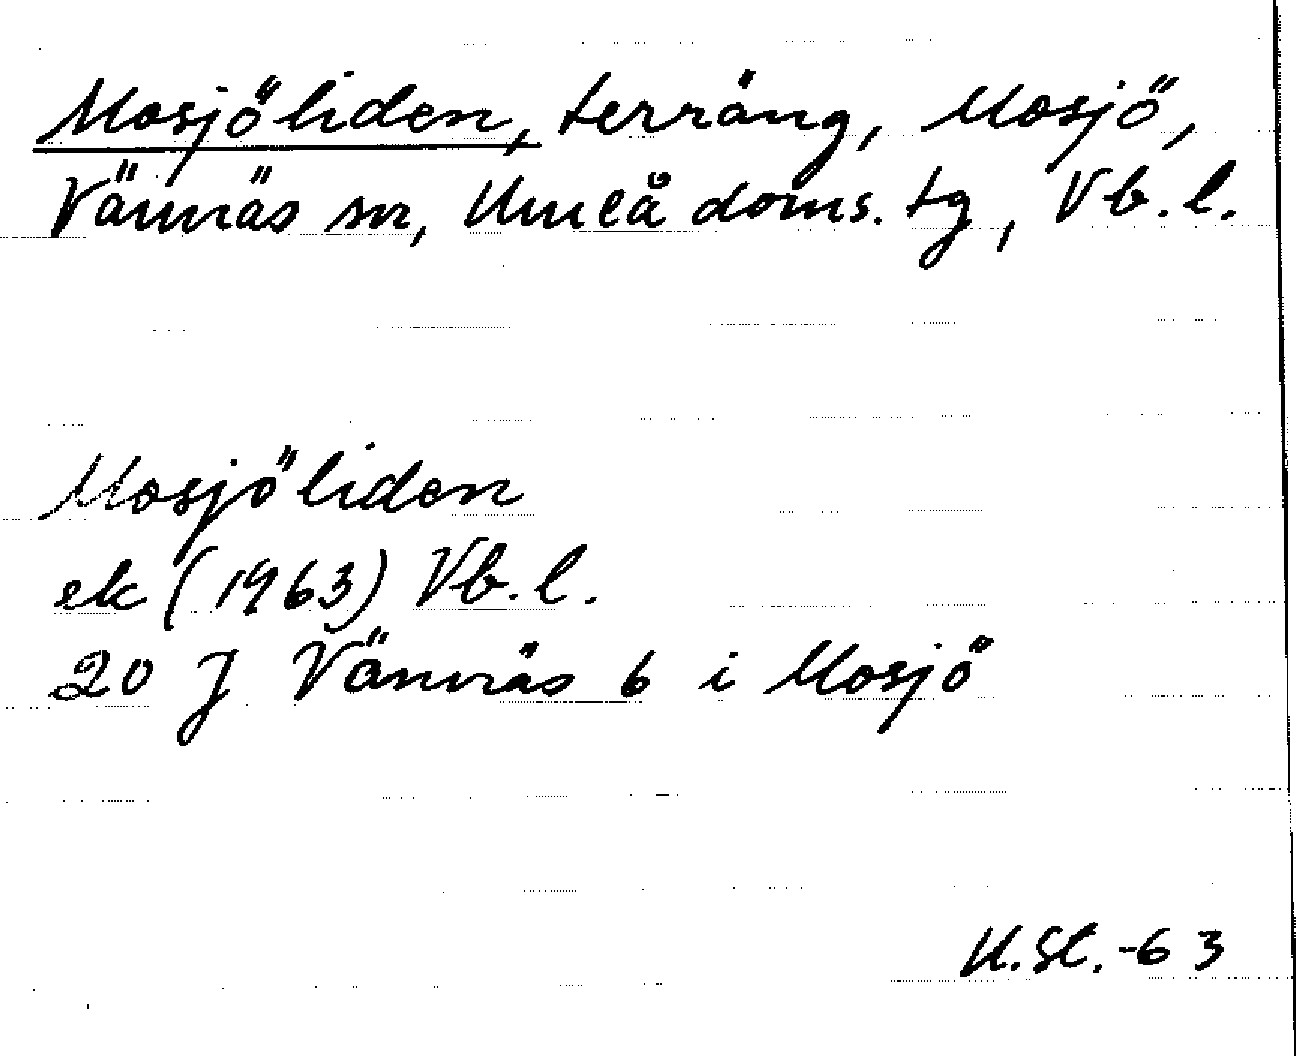 Mosjöliden, terräng, Mosjö,
Vännäs sn, Umeå doms. tg, Vb. l.
Mosjöliden
ek (1963) Vb. l.
20 J Vännäs 6 i Mosjö
U. Sl. -63